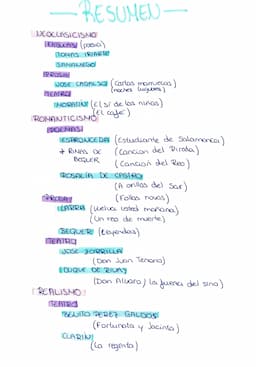 — RESUMEN —
NEOCLASICISMO
FÁBULAS (poesía)
TOMÁS IRIARTE
SAMANIEGO
PROSA
JOSE CADALSO (Cartas marruecas)
(noches lúgubres)
TEATRO
MORATÍN (El sí de las niñas)
(El café)
ROMANTICISMO
POEMAS
ESPRONCEDA (Estudiante de Salamanca)
+ RIMAS DE (Canción del Pirata)
BEQUER (Canción del Reo)
ROSALÍA DE CASTRO
(A orillas del Sar)
(Follas novas)
PROSA
LARRA (Vuelva usted mañana)
(Un reo de muerte)
BEQUER (Leyendas)
TEATRO
JOSE ZORRILLA
(Don Juan Tenorio)
DUQUE DE RIVAS
(Don Alvaro / la fuerza del sino)
REALISMO
TEATRO
BENITO PEREZ GALDOS
(Fortunata y Jacinta)
CLARÍN
(La regenta)